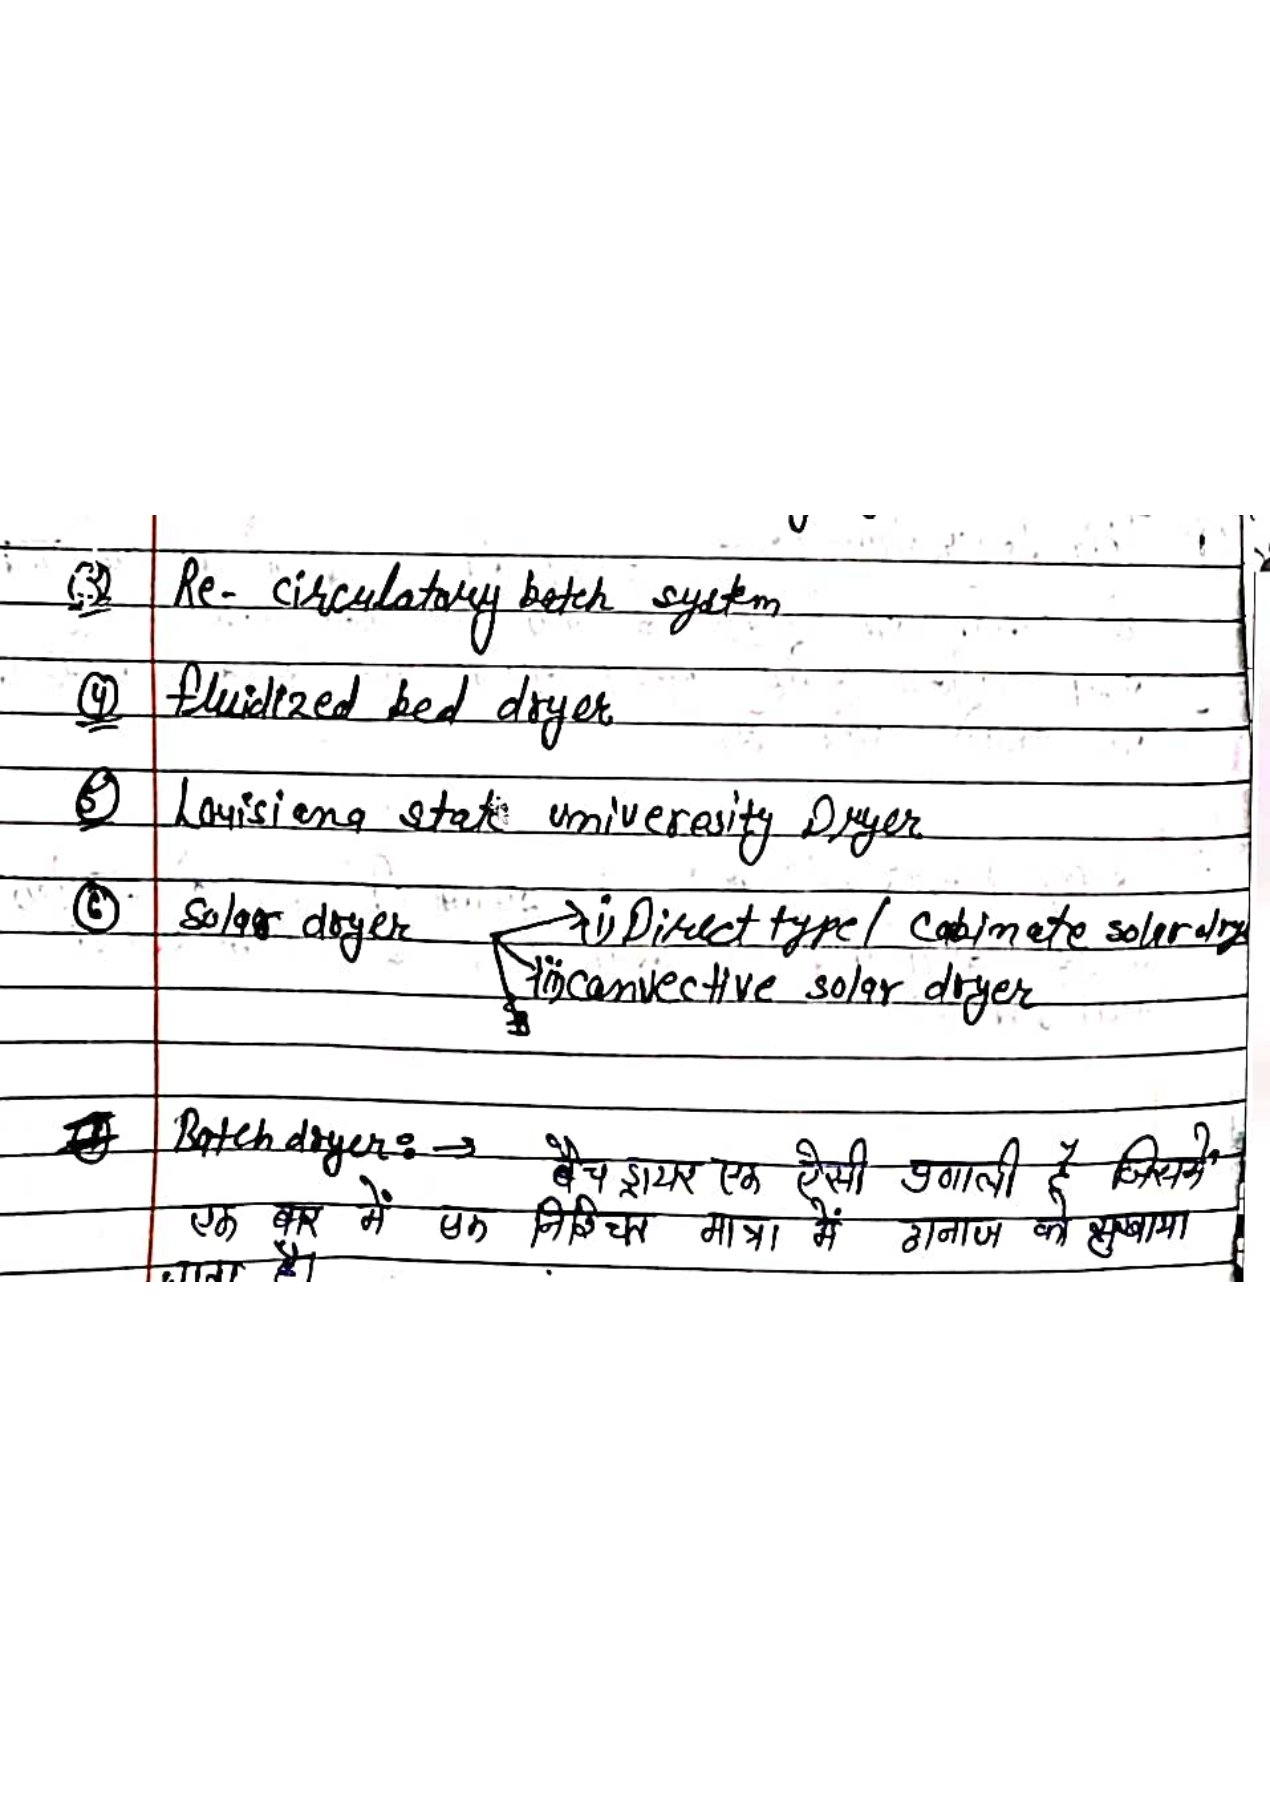 (3) Re- circulatory batch system
(4) fluidized bed dryer
(5) Louisiana state univeresity Dryer
(6) Solar dryer → i) Direct type / Cabinate solar dry
ii) canvective solar dryer
(1) Batch dryer :→ बैच ड्रायर एक ऐसी प्रणाली है जिसमें
एक बार में एक निश्चित मात्रा में अनाज को सुखाया
जाता है।